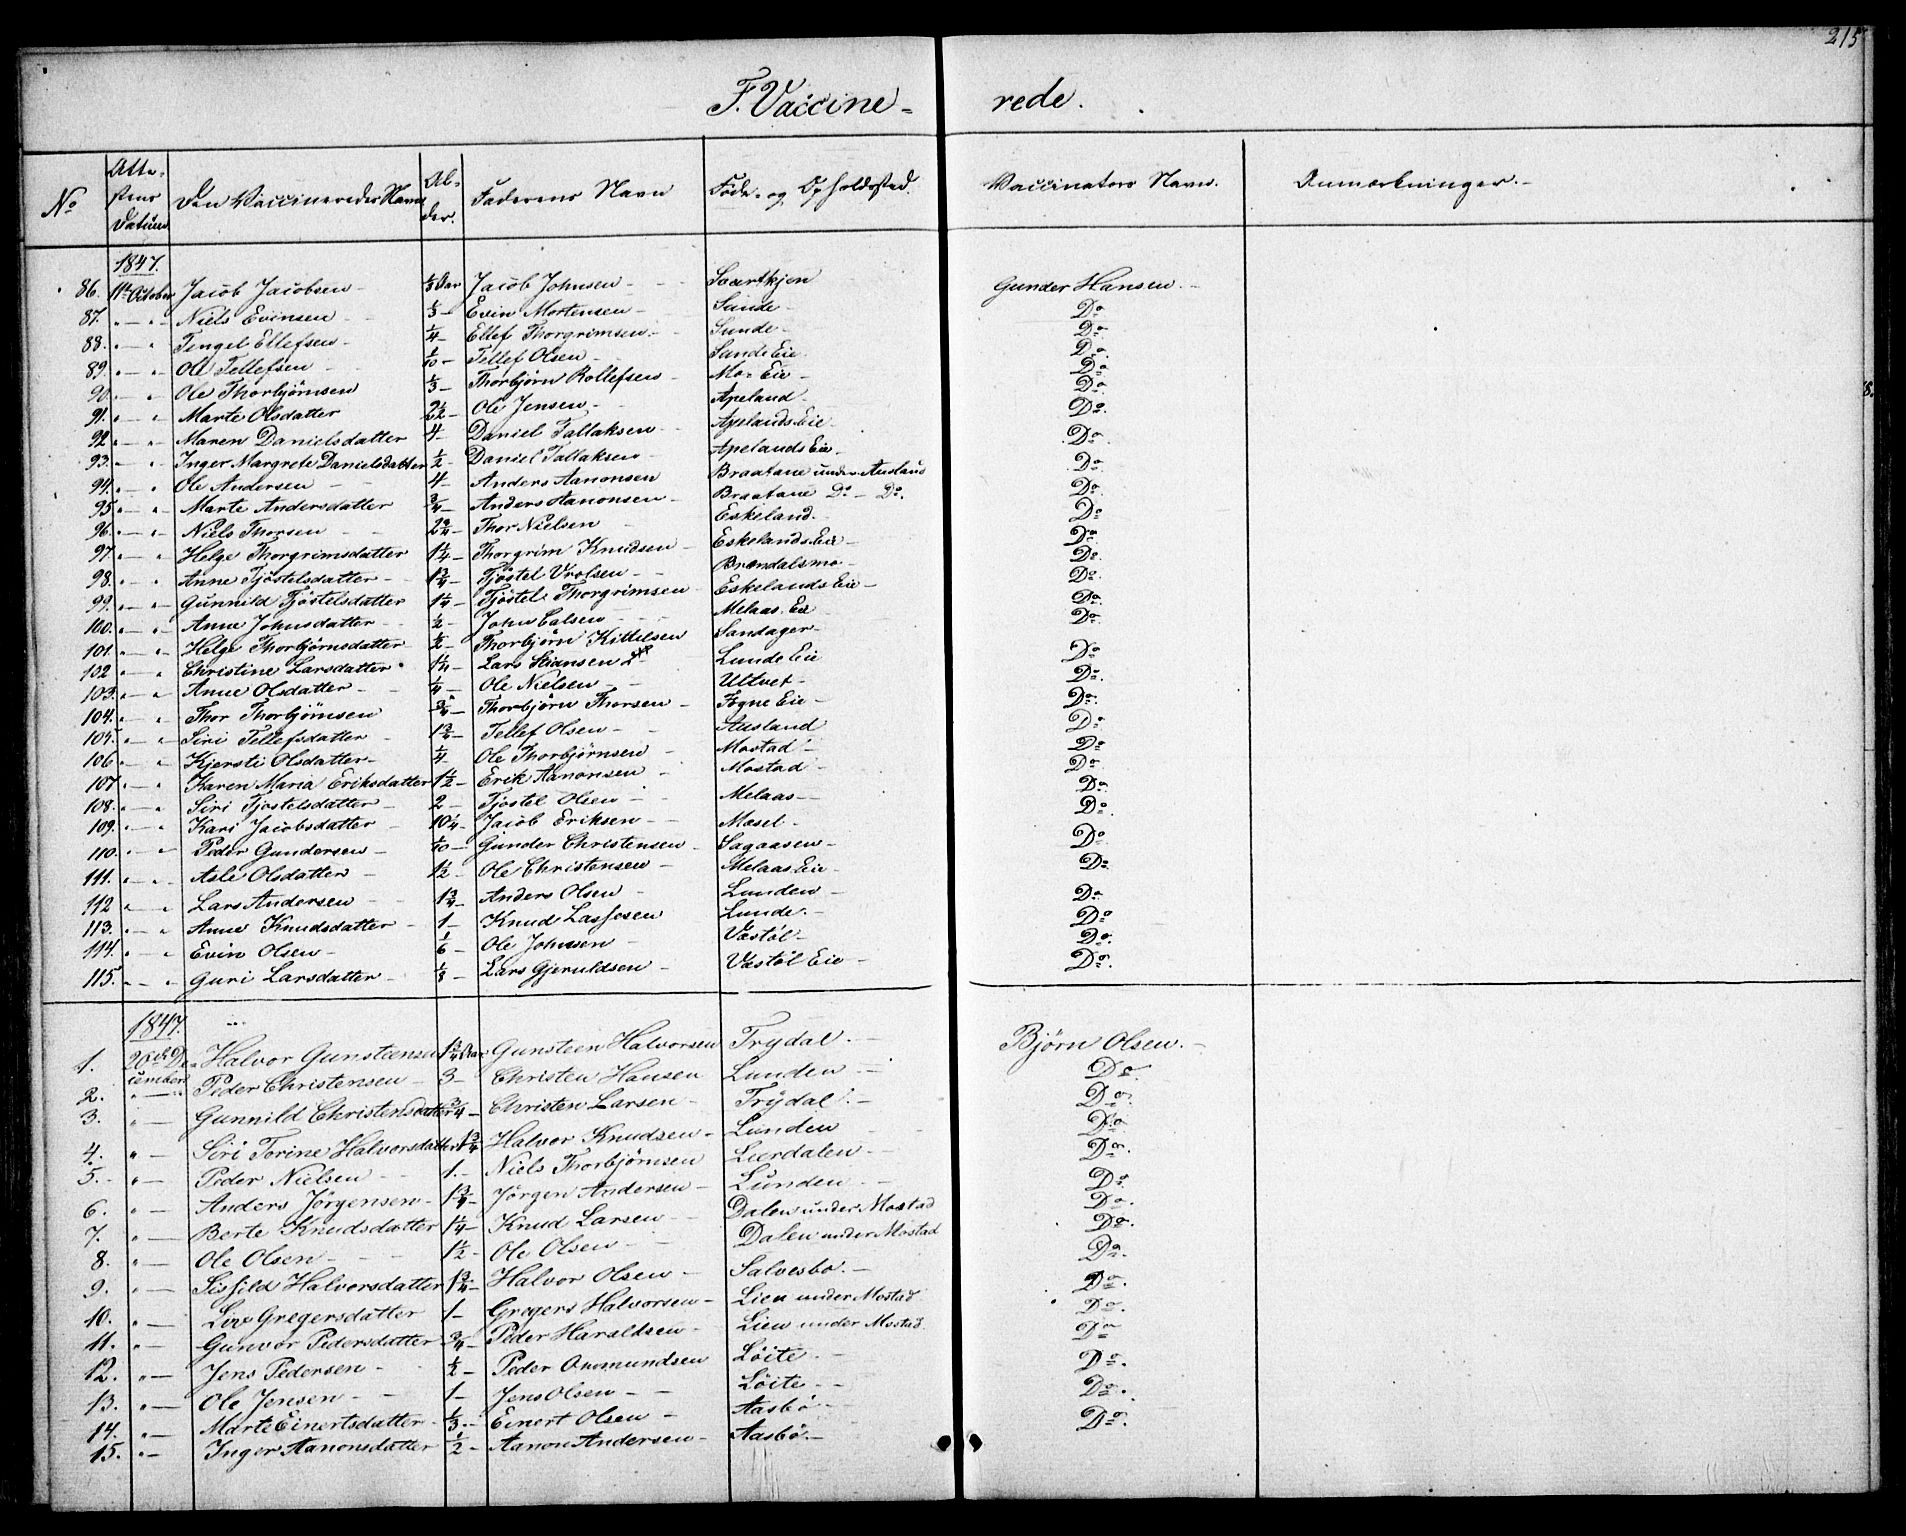 215
F. Vaccine= rede.
No | Atte=stens Datum | Den Vaccineredes Navn | Al=der. | Faderens Navn | Føde- og Opholdssted. | Vaccinators Navn. | Anmærkninger.
1847.
86. 11te October Jacob Jacobsen - 1/3 Aar Jacob Johnsen - Svartkjen Gunder Hansen. -
87. " - " - Niels Evinsen - 1/3 - Evin Mortensen - Sunde - Do
88. " - " Tengel Ellefsen - 1/4 - Ellef Thorgrimsen - Sunde - Do
89. " - " Ole Tellefsen - 1/10 - Tellef Olsen - Sunde Eie Do
90. " - " Ole Thorbjørnsen 1/3 - Thorbjørn Rollefsen - Mo- Eie - Do
91. " - " Marte Olsdatter 2 1/2 - Ole Jensen - Apeland - Do
92 " - " Maren Danielsdatter 4 - Daniel Tallaksen - Apelands Eie - Do
93. " - " Inger Margrete Danielsdatter 1/2 - Daniel Tallaksen - Apelands Eie - Do
94. " - " Ole Andersen - 4 - Anders Aanonsen Braatane under Ausland Do
95. " - " Marte Andersdatter 3/4 - Anders Aanonsen - Braatane Do - Do. Do
96. " - " Niels Thorsen 2 3/4 - Thor Nielsen - Eskeland. Do
97. " - " Helge Thorgrimsdatter 1 1/4 - Thorgrim Knudsen - Eskelands Eie - Do
98. " - " Anne Tjøstelsdatter - 1 3/4 - Tjøstel Vrolsen - Brændalsmo - Do
99. " - " Gunnild Tjøstelsdatter 1 1/4 - Tjøstel Thorgrimsen Eskelands Eie - Do
100. " - " Anne Johnsdatter - 1/2 - John Calsen - Melaas Eie Do
101. " - " Helge Thorbjørnsdatter 1/2 - Thorbjørn Kittilsen Sandager - Do
102 " - " Christine Larsdatter 1 1/4 - Lars Lunde Eie Do
103. " - " Anne Olsdatter - 1/4 - Ole Nielsen - Ultvet - Do
104. " - " Thor Thorbjørnsen 3/4 - Thorbjørn Thorsen - Fogne Eie - Do
105. " - " Siri Tellefsdatter - 1 3/4 - Tellef Olsen - Ausland Do
106 " - " Kjersti Olsdatter - 1/4 - Ole Thorbjørnsen - Mostad - Do
107 " - " Karen Maria Eriksdatter 1 1/2 - Erik Aanonsen - Mostad - Do
108. " - " Siri Tjøstelsdatter - 2 - Tjøstel Olsen - Melaas - Do
109. " - " Kari Jacobsdatter - 10 1/4 - Jacob Eriksen - Mæsel - Do
110. " - " Peder Gundersen - 1/10 - Gunder Christensen - Sagaasen - Do
111. " - " Asle Olsdatter - 1 1/2 - Ole Christensen - Melaas Eie - Do
112 " - " Lars Andersen - 1 3/4 - Anders Olsen - Lunden - Do
113. " - " Anne Knudsdatter - 1 - Knud Lassesen Lunde. - Do
114. " - " Evin Olsen - 1/6 - Ole Johnsen - Vastøl - Do
115. " - " Guri Larsdatter - 1/8 - Lars Gjeruldsen - Vastøl Eie - Do
1847.
1. 26de De=cember Halvor Gunsteensen 1 3/4 Aar Gunsteen Halvorsen Trydal. - Bjørn Olsen. -
2. " - " Peder Christensen - 3 - Christen Hansen Lunden - Do
3. " - Gunnild Christensdatter 3/4 - Christen Larsen - Trydal - Do
4. " - Siri Torine Halvorsdatter 1 3/4 Halvor Knudsen - Lunden - Do
5. " - Peder Nielsen - 1. - Niels Thorbjørnsen Lierdalen - Do
6. " - Anders Jørgensen - 1 3/4 - Jørgen Andersen - Lunden - Do
7. " - Berte Knudsdatter 1 1/4 - Knud Larsen - Dalen under Mostad Do
8. " - Ole Olsen - 1 1/2 - Ole Olsen - Dalen under Mostad Do
9. " - Sisfild Halvorsdatter 1 3/4 - Halvor Olsen - Salvesbo. - Do
10. " - Liv Gregersdatter 1 - Gregers Halvorsen - Lien under Mostad Do
11. " - Gunvor Pedersdatter 3/4 - Peder Haraldsen - Lien under Mostad Do
12. " - Jens Pedersen - 1/2 - Peder Omundsen Løite - Do
13. " - Ole Jensen - 1 - Jens Olsen - Løite - Do
14. " - Marte Einertsdatter - 1/3 - Einert Olsen - Aasbø - Do
15. " - Inger Aanonsdatter 1/2 - Aanon Andersen - Aasbø. - Do